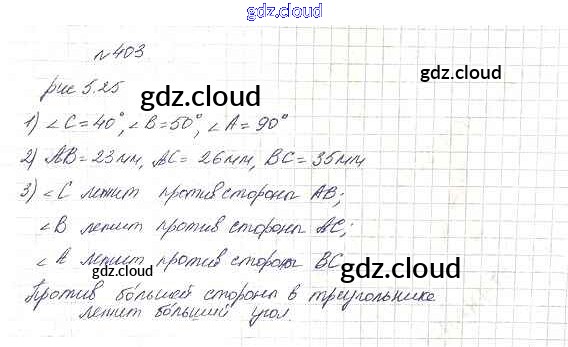 gdz.cloud
№403
gdz.cloud
рис 5.25
gdz.cloud
1) ∠C=40°, ∠B=50°, ∠A=90°
2) AB=23мм, AC=26мм, BC=35мм
3) ∠C лежит против стороны AB;
∠B лежит против стороны AC;
∠A лежит против стороны BC
gdz.cloud
gdz.cloud
Против бо́льшей стороны в треугольнике
лежит бо́льший угол.